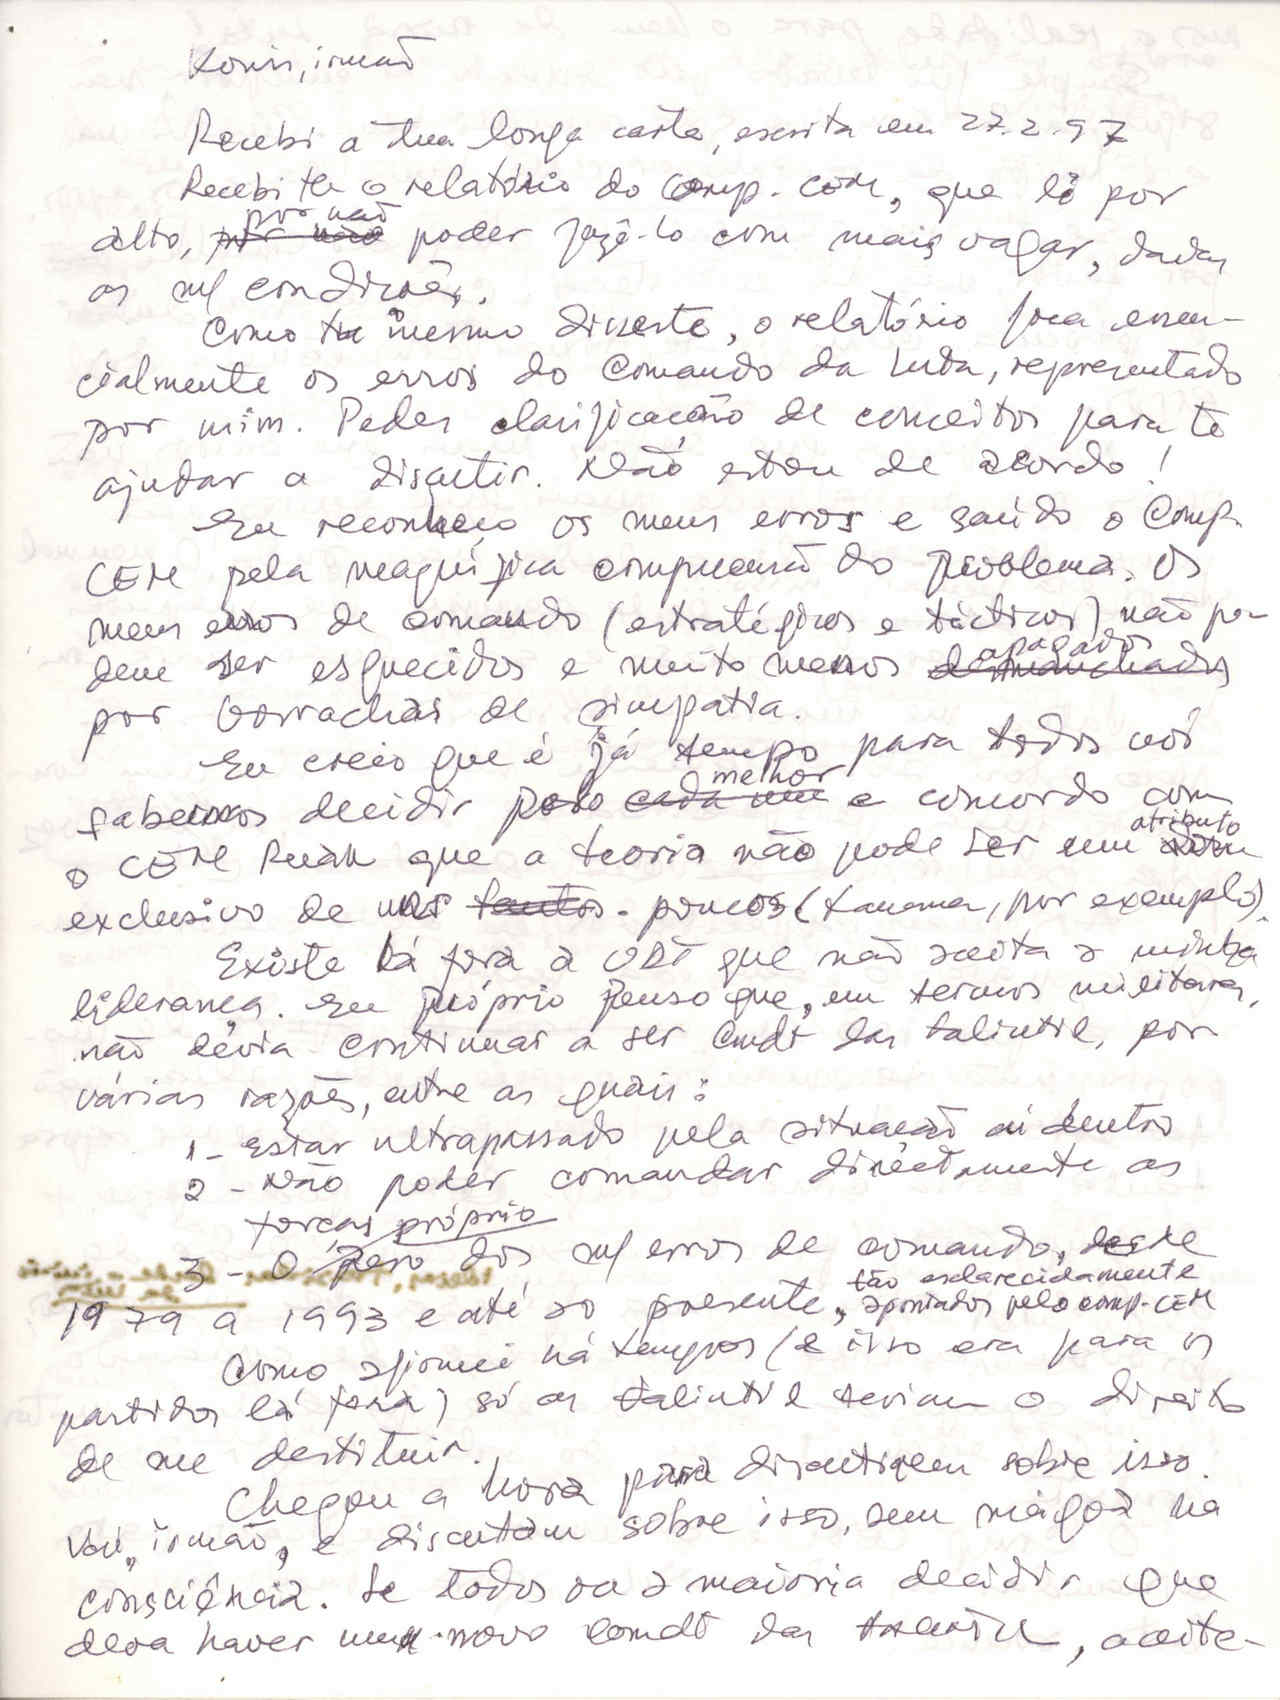 Konis, irmão
Recebi a tua longa carta, escrita em 27.2.97
Recebi tb o relatório do Comp. CEM, que lí por
alto, por não por não poder fazê-lo com mais vagar, dadas
as m/ condições.
Como tu mesmo disseste, o relatório foca essen-
cialmente os erros do Comando da Luta, representado
por mim. Pedes clarificação de conceitos para te
ajudar a discutir. Não estou de acordo!
Eu reconheço os meus erros e saúdo o Comp.
CEM pela magnífica compreensão do problema. Os
meus erros de comando (estratégicos e tácticos) não po-
dem ser esquecidos e muito menos desmanchados apagados
por borrachas de simpatia.
Eu creio que é já tempo para todos nós
sabermos decidir pelo cada um melhor e concordo com
o CEM Ruak que a teoria não pode ser um atributo
exclusivo de uns tantos poucos (Xanana, por exemplo).
Existe lá fora a UDT que não aceita a minha
liderança. Eu próprio penso que, em termos militares,
não devia continuar a ser Cmdt das Falintil, por
várias razões, entre as quais:
1 - Estar ultrapassado pela situação aí dentro
2 - Não poder comandar directamente as
forças próprio
3 - O peso dos m/ erros de comando, desde
1979 a 1993 e até ao presente, tão esclarecidamente apontados pelo comp-CEM
Como afirmei há tempos (e isso era para os
partidos lá fora) só as Falintil teriam o direito
de me destituir.
Chegou a hora para discutirem sobre isso.
Vai, irmão, e discutam sobre isso, sem mágoa na
consciência. Se todos ou a maioria decidir que
deva haver um novo comdt das Falintil, aceite-